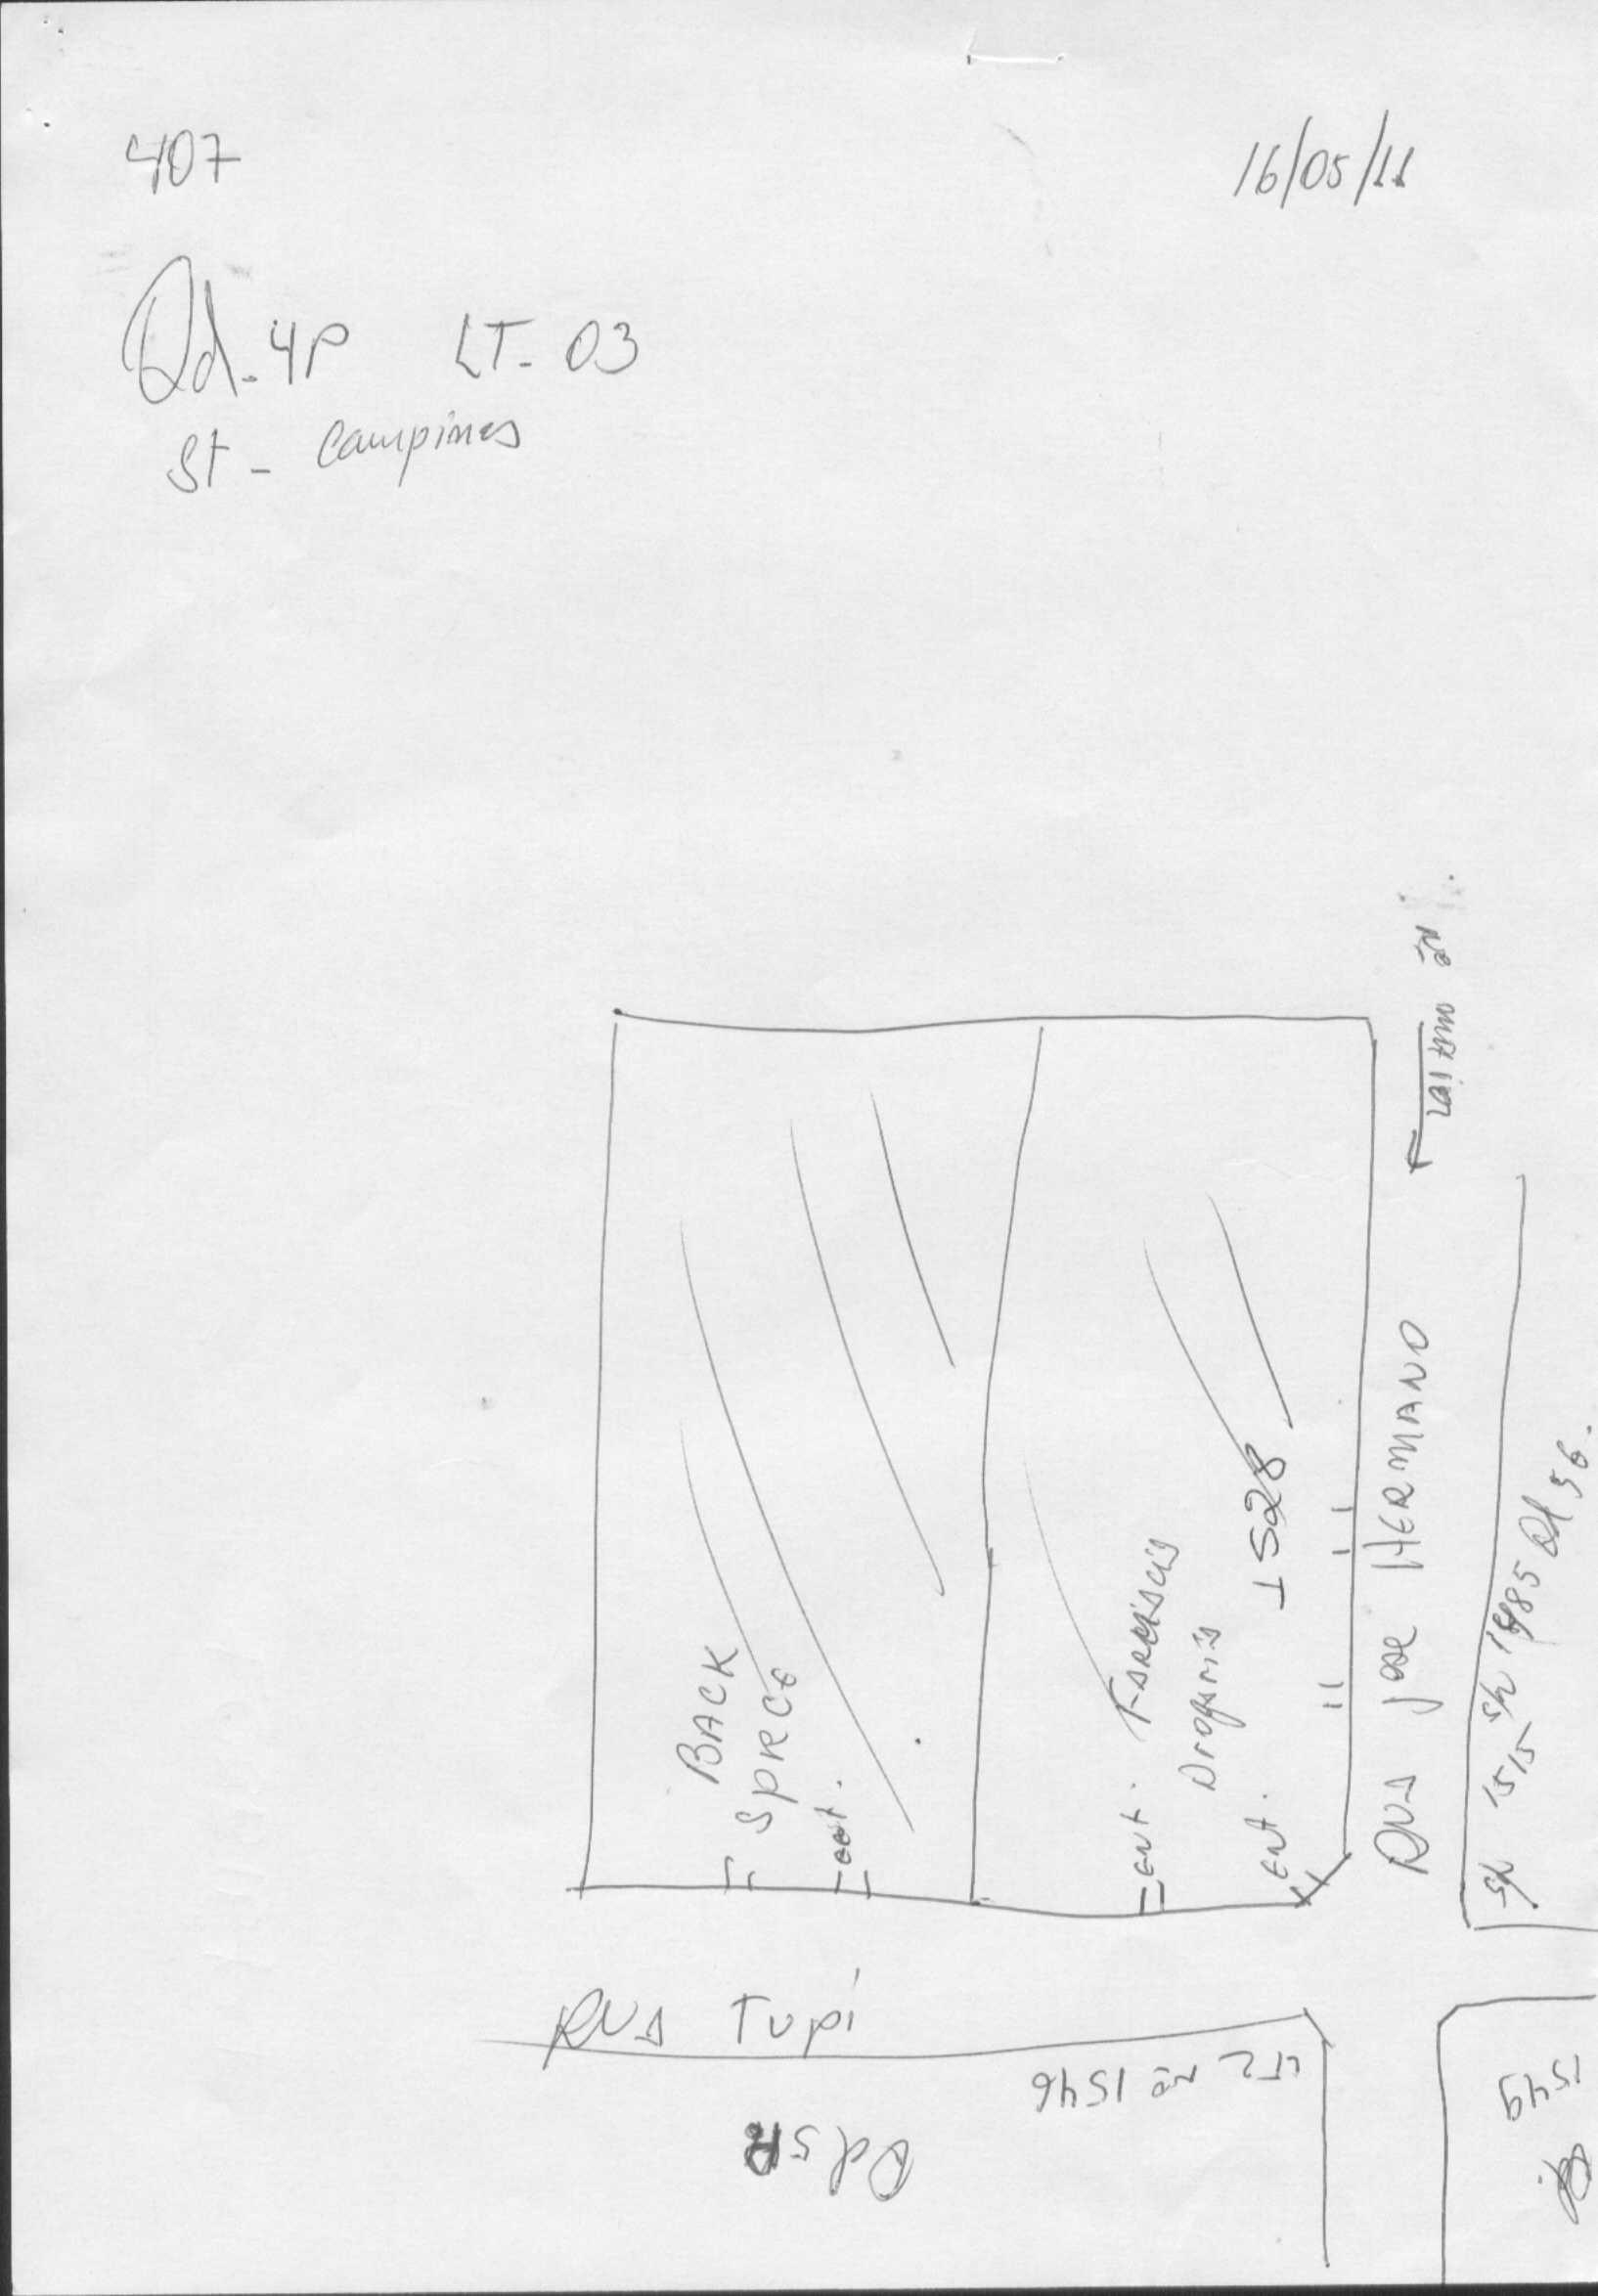 407
16/05/11
Qd. 4P LT. 03
St - Campinas
BACK
SPACE
ent.
ent. Farmácia
Drogaria
ent.
1528
RUA José HERMANO
1515 1485 Qd 56.
RUA Tupi
LT2 nº 1546
Qd 5R
1549